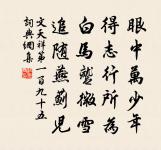 眼中萬少年
得志行所為
白馬蹵微雪
追隨燕薊兒
文天祥第一百九十五
詞典網集